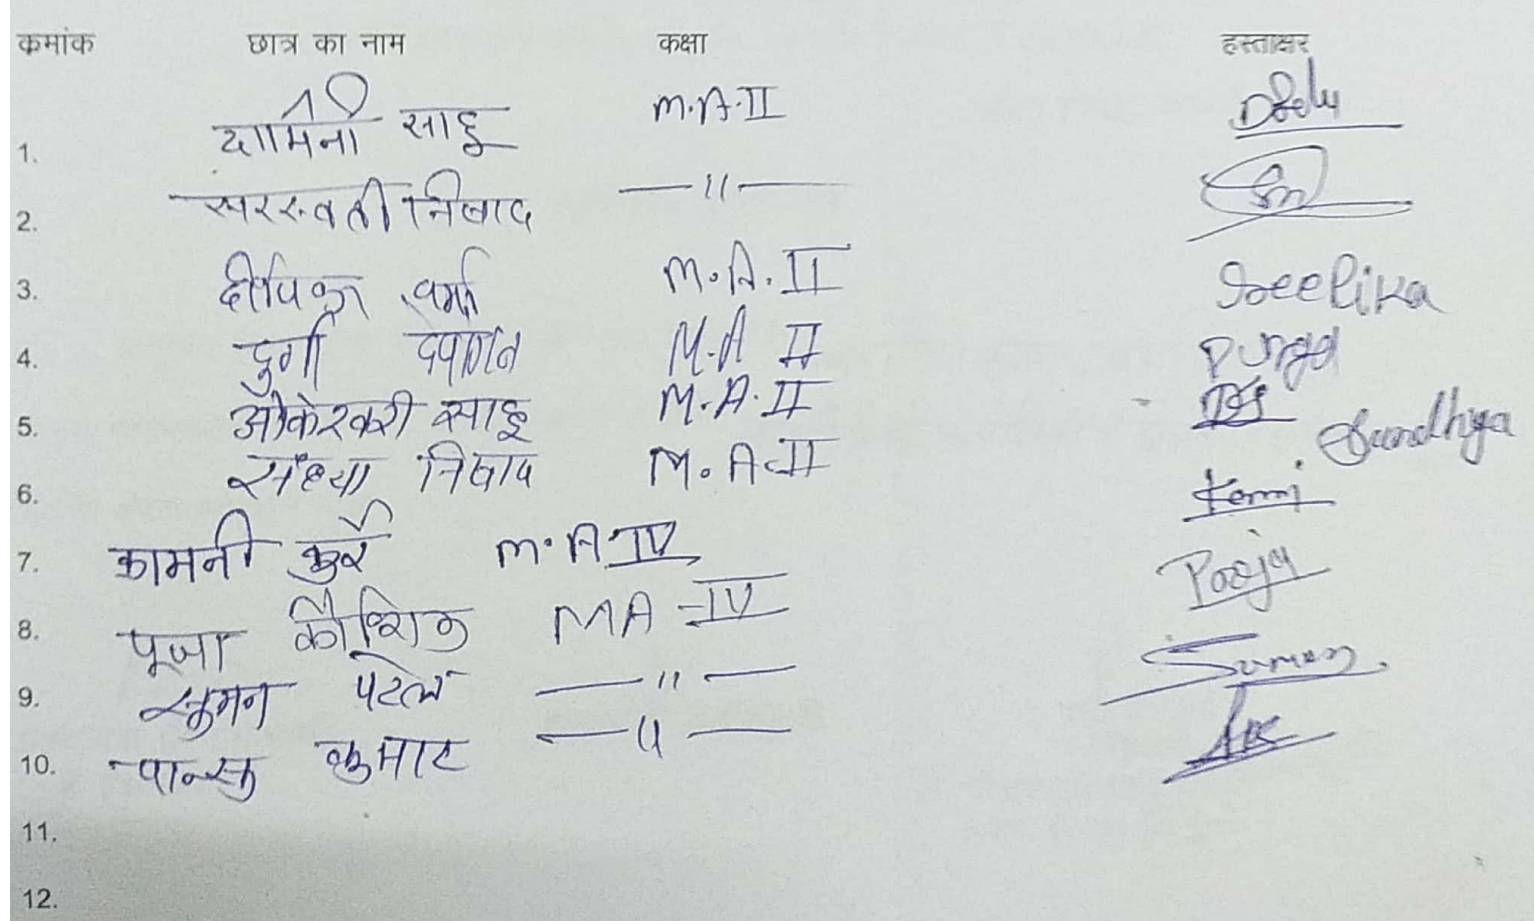 कमांक छात्र का नाम कक्षा हस्ताक्षर
1. दामिनी साहू M.A.II
2. सरस्वती निषाद —〃—
3. दीपिका वर्मा M.A. II Deepika
4. दुर्गा देवांगन M.A II Durga
5. ओकेश्वरी साहू M.A.II
6. संध्या निषाद M.A-II Sandhiya
7. कामनी कुर्रे M.A.IV Kamni
8. पूजा कौशिक MA-IV Pooja
9. सुमन पटेल —〃— Suman
10. कुमार —〃—
11.
12.